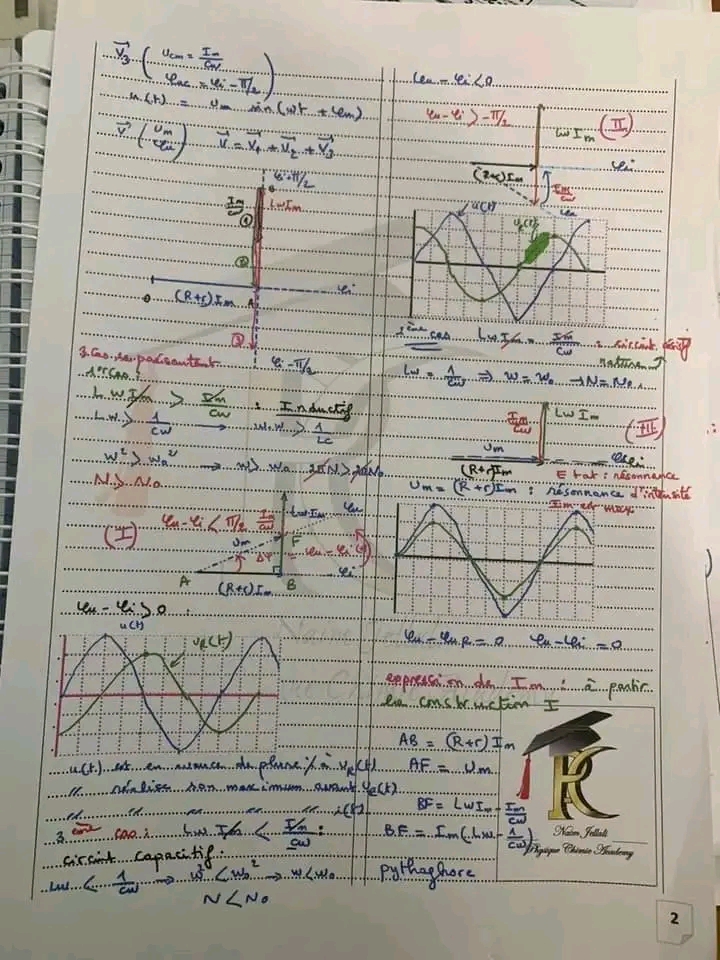 V⃗₃ ( Ucm = Im/Cω
φuc = φi - π/2 )
u(t) = Um sin(wt + φu)
V⃗ ( Um
φu ) V⃗ = V⃗₁ + V⃗₂ + V⃗₃
φi + π/2
Im/Cω
LωIm
①
②
(R+r)Im
A
φi
③
φi - π/2
3 cas se présentent
1er cas :
LωIm > Im/Cω : Inductif
Lω > 1/Cω → w.w > 1/LC
w² > w₀² → w > w₀ 2πN > 2πN₀
N > N₀
(I)
φu - φi < π/2
Im/Cω
LωIm
φu
Um
F
φu - φi
φi
A
B
(R+r)Im
φu - φi > 0
u(t)
uR(t)
u(t) est en avance de phase % à uR(t)
" réalise son maximum avant uR(t)
" " " " " i(t)
3ème cas : LωIm < Im/Cω :
circuit capacitif
Lω < 1/Cω → w² < w₀² → w < w₀
N < N₀
φu - φi < 0
φu - φi > -π/2
LωIm
(II)
(R+r)Im
φi
Im/Cω
φu
u(t)
uR(t)
2ème cas LωIm = Im/Cω : circuit résistif
Lω = 1/Cω ⇒ w = w₀ → N = N₀
Im/Cω
LωIm
(III)
Um
φi
(R+r)Im
Etat : résonnance
Um = (R+r)Im : résonnance d'intensité
Im est max
φu - φuR = 0 φu - φi = 0
expression de Im : à partir
la construction I
AB = (R+r)Im
AF = Um
BF = LωIm - Im/Cω
BF = Im(Lω - 1/Cω)
pythaghore
PC
Naim Jellali
Physique Chimie Academy
2